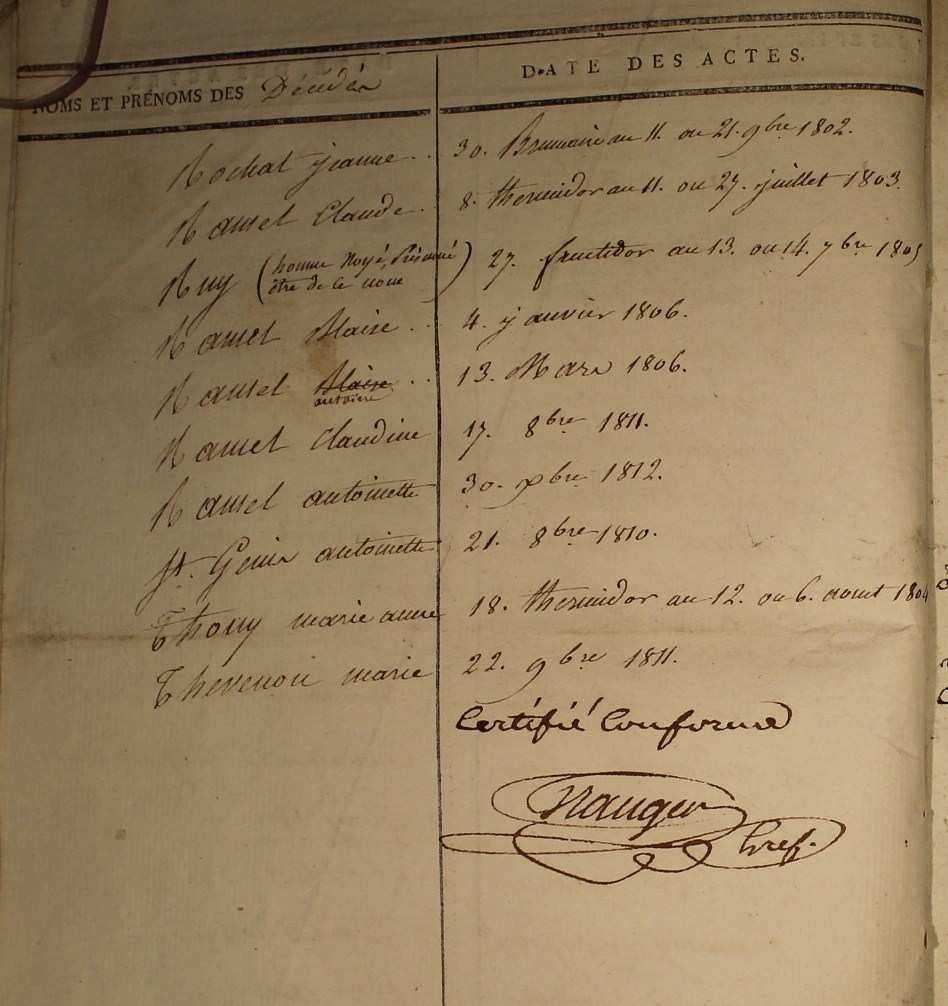 NOMS ET PRÉNOMS DES Décédés
DATE DES ACTES.
Rochat jeanne.. 30. Brumaire an 11. ou 21. 9bre 1802.
Ramel Claude. 8. thermidor an 11. ou 27. juillet 1803.
Ruy (homme Noyé, Présumé être de ce nom) 27. fructidor an 13. ou 14. 7bre 1805
Ramel Blaise.. 4. janvier 1806.
Ramel Blaise antoine.. 13. Mars 1806.
Ramel Claudine 17. 8bre 1811.
Ramel antoinette 30. xbre 1812.
St. Genis antoinette 21. 8bre 1810.
Thouy marie anne 18. thermidor an 12. ou 6. aout 1804
Thevenon marie 22. 9bre 1811.
Certifié Conforme
Gref.